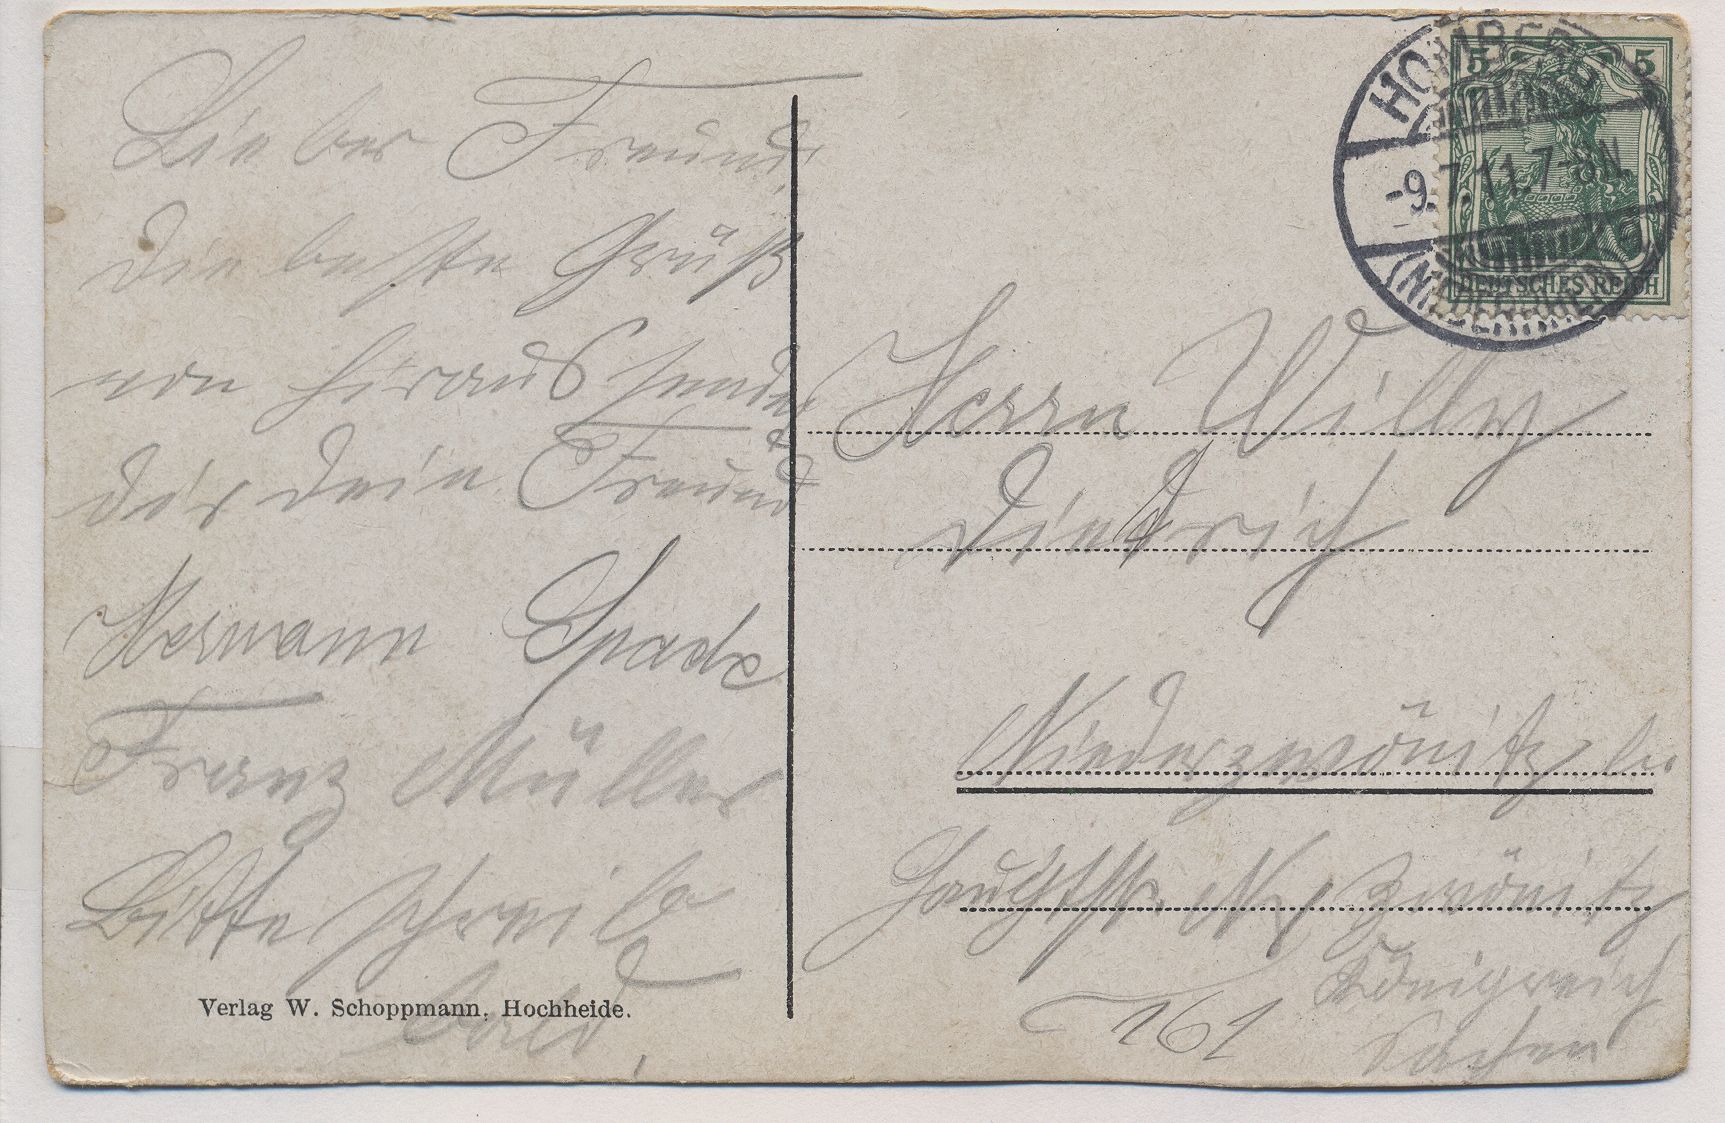 Lieber Freund,
die beste Grüß
von hiraus sendet
dir dein Freund
Hermann Spade
Franz Müller
Bitte schreib
bald,
Verlag W. Schoppmann, Hochheide.
HOMBERG
-9.7.11.7-8N.
(NIEDERRHEIN)
5 5
DEUTSCHES REICH
Herrn Willy
Dietrich
Niederzwönitz bei
Zwönitz
Königreich
Sachsen
161